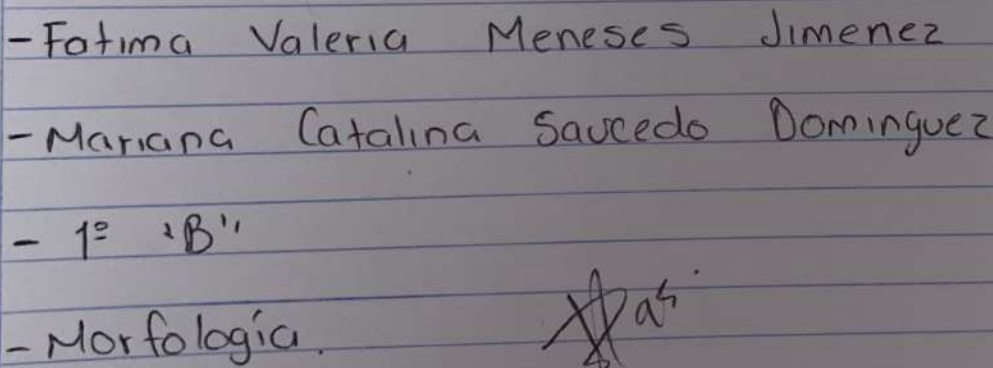 -Fatima Valeria Meneses Jimenez
-Mariana Catalina Saucedo Dominguez
- 1º "B"
-Morfología.